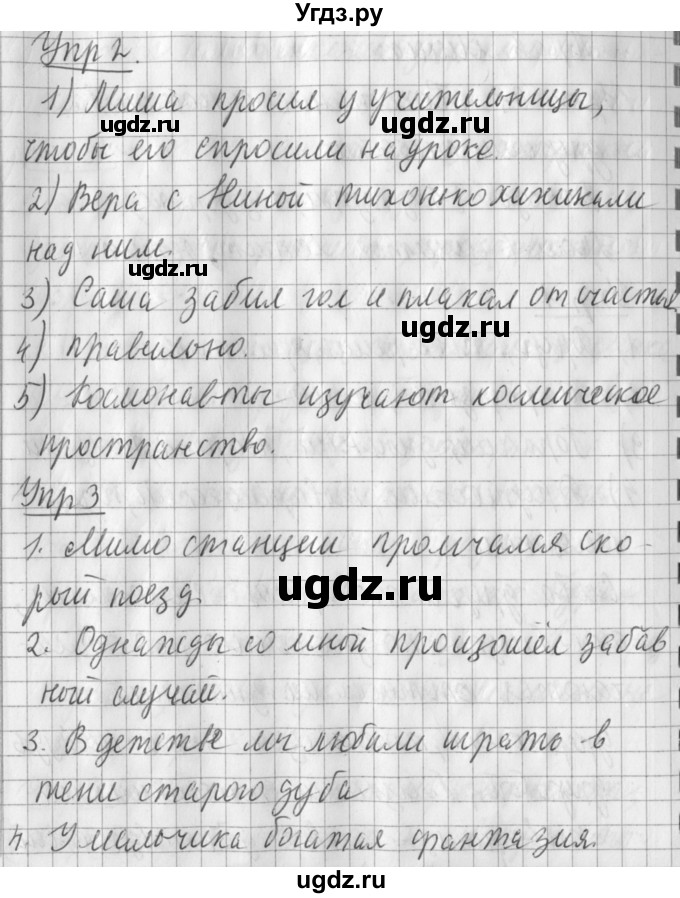 Угдз.ру
Упр 2.
1) Миша просил у учительницы,
ugdz.ru ugdz.ru
чтобы его спросили на уроке.
2) Вера с Ниной тихонько хихикали
над ним.
ugdz.ru
3) Саша забил гол и плакал от счастья
ugdz.ru
4) правильно.
5) Космонавты изучают космическое
ugdz.ru
пространство.
Упр 3
1. Мимо станции промчался ско-
ugdz.ru
рый поезд.
2. Однажды со мной произошёл забав
ugdz.ru
ный случай.
3. В детстве мы любили играть в
ugdz.ru
тени старого дуба
4. У мальчика богатая фантазия.
ugdz.ru